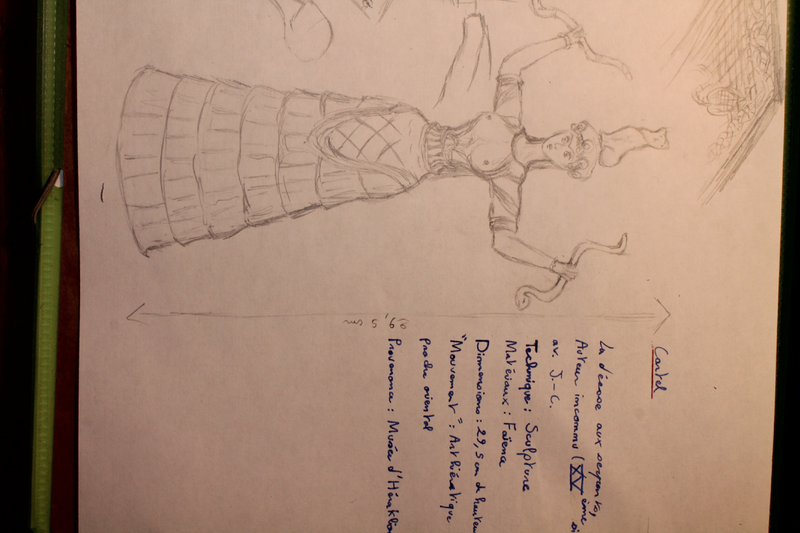 Cartel
La déesse aux serpents,
Auteur inconnu (XVème
av. J.-C.
Technique : Sculpture
Matériaux : Faïence
Dimensions : 29,5 cm de hauteur
"Mouvement" : Art hiératique
proche oriental
Provenance : Musée d'Hérakl
29,5 cm